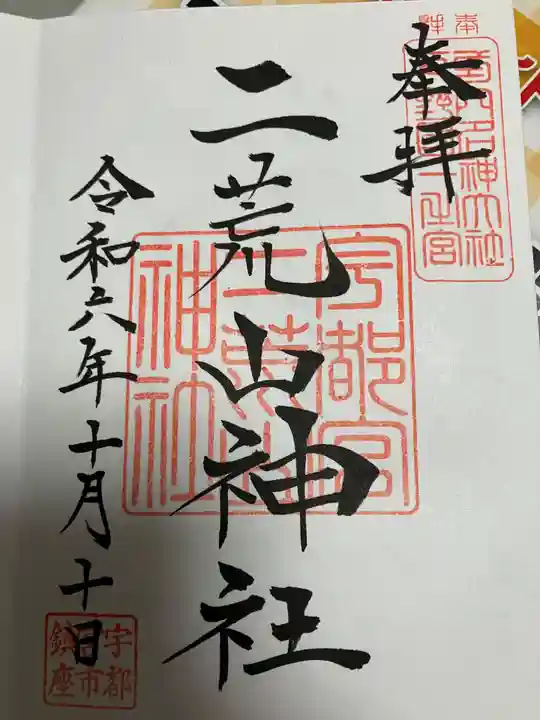 奉拝
二荒山神社
宇都宮
二荒山
神社
令和六年十月十日
宇都
宮市
鎮座